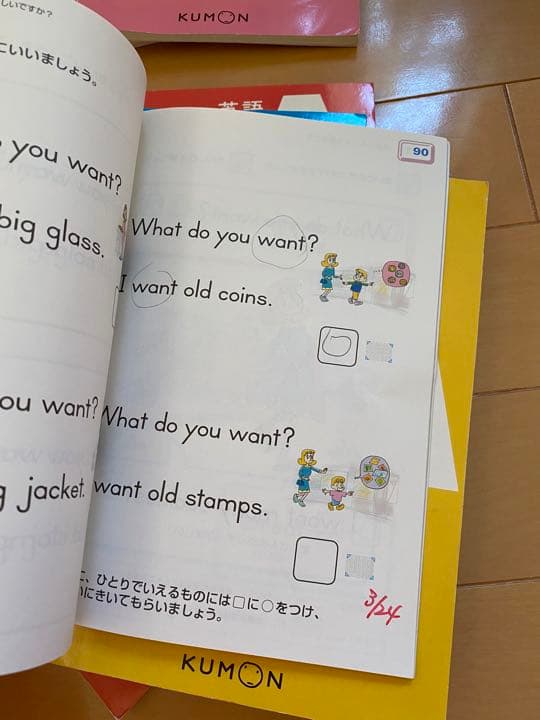 KUMON
しいですか？
にいいましょう。
英語
you want?
big glass.
90
What do you want?
I want old coins.
ou want?
jacket.
What do you want?
want old stamps.
、ひとりでいえるものには□に○をつけ、
にきいてもらいましょう。
3/24
KUMON